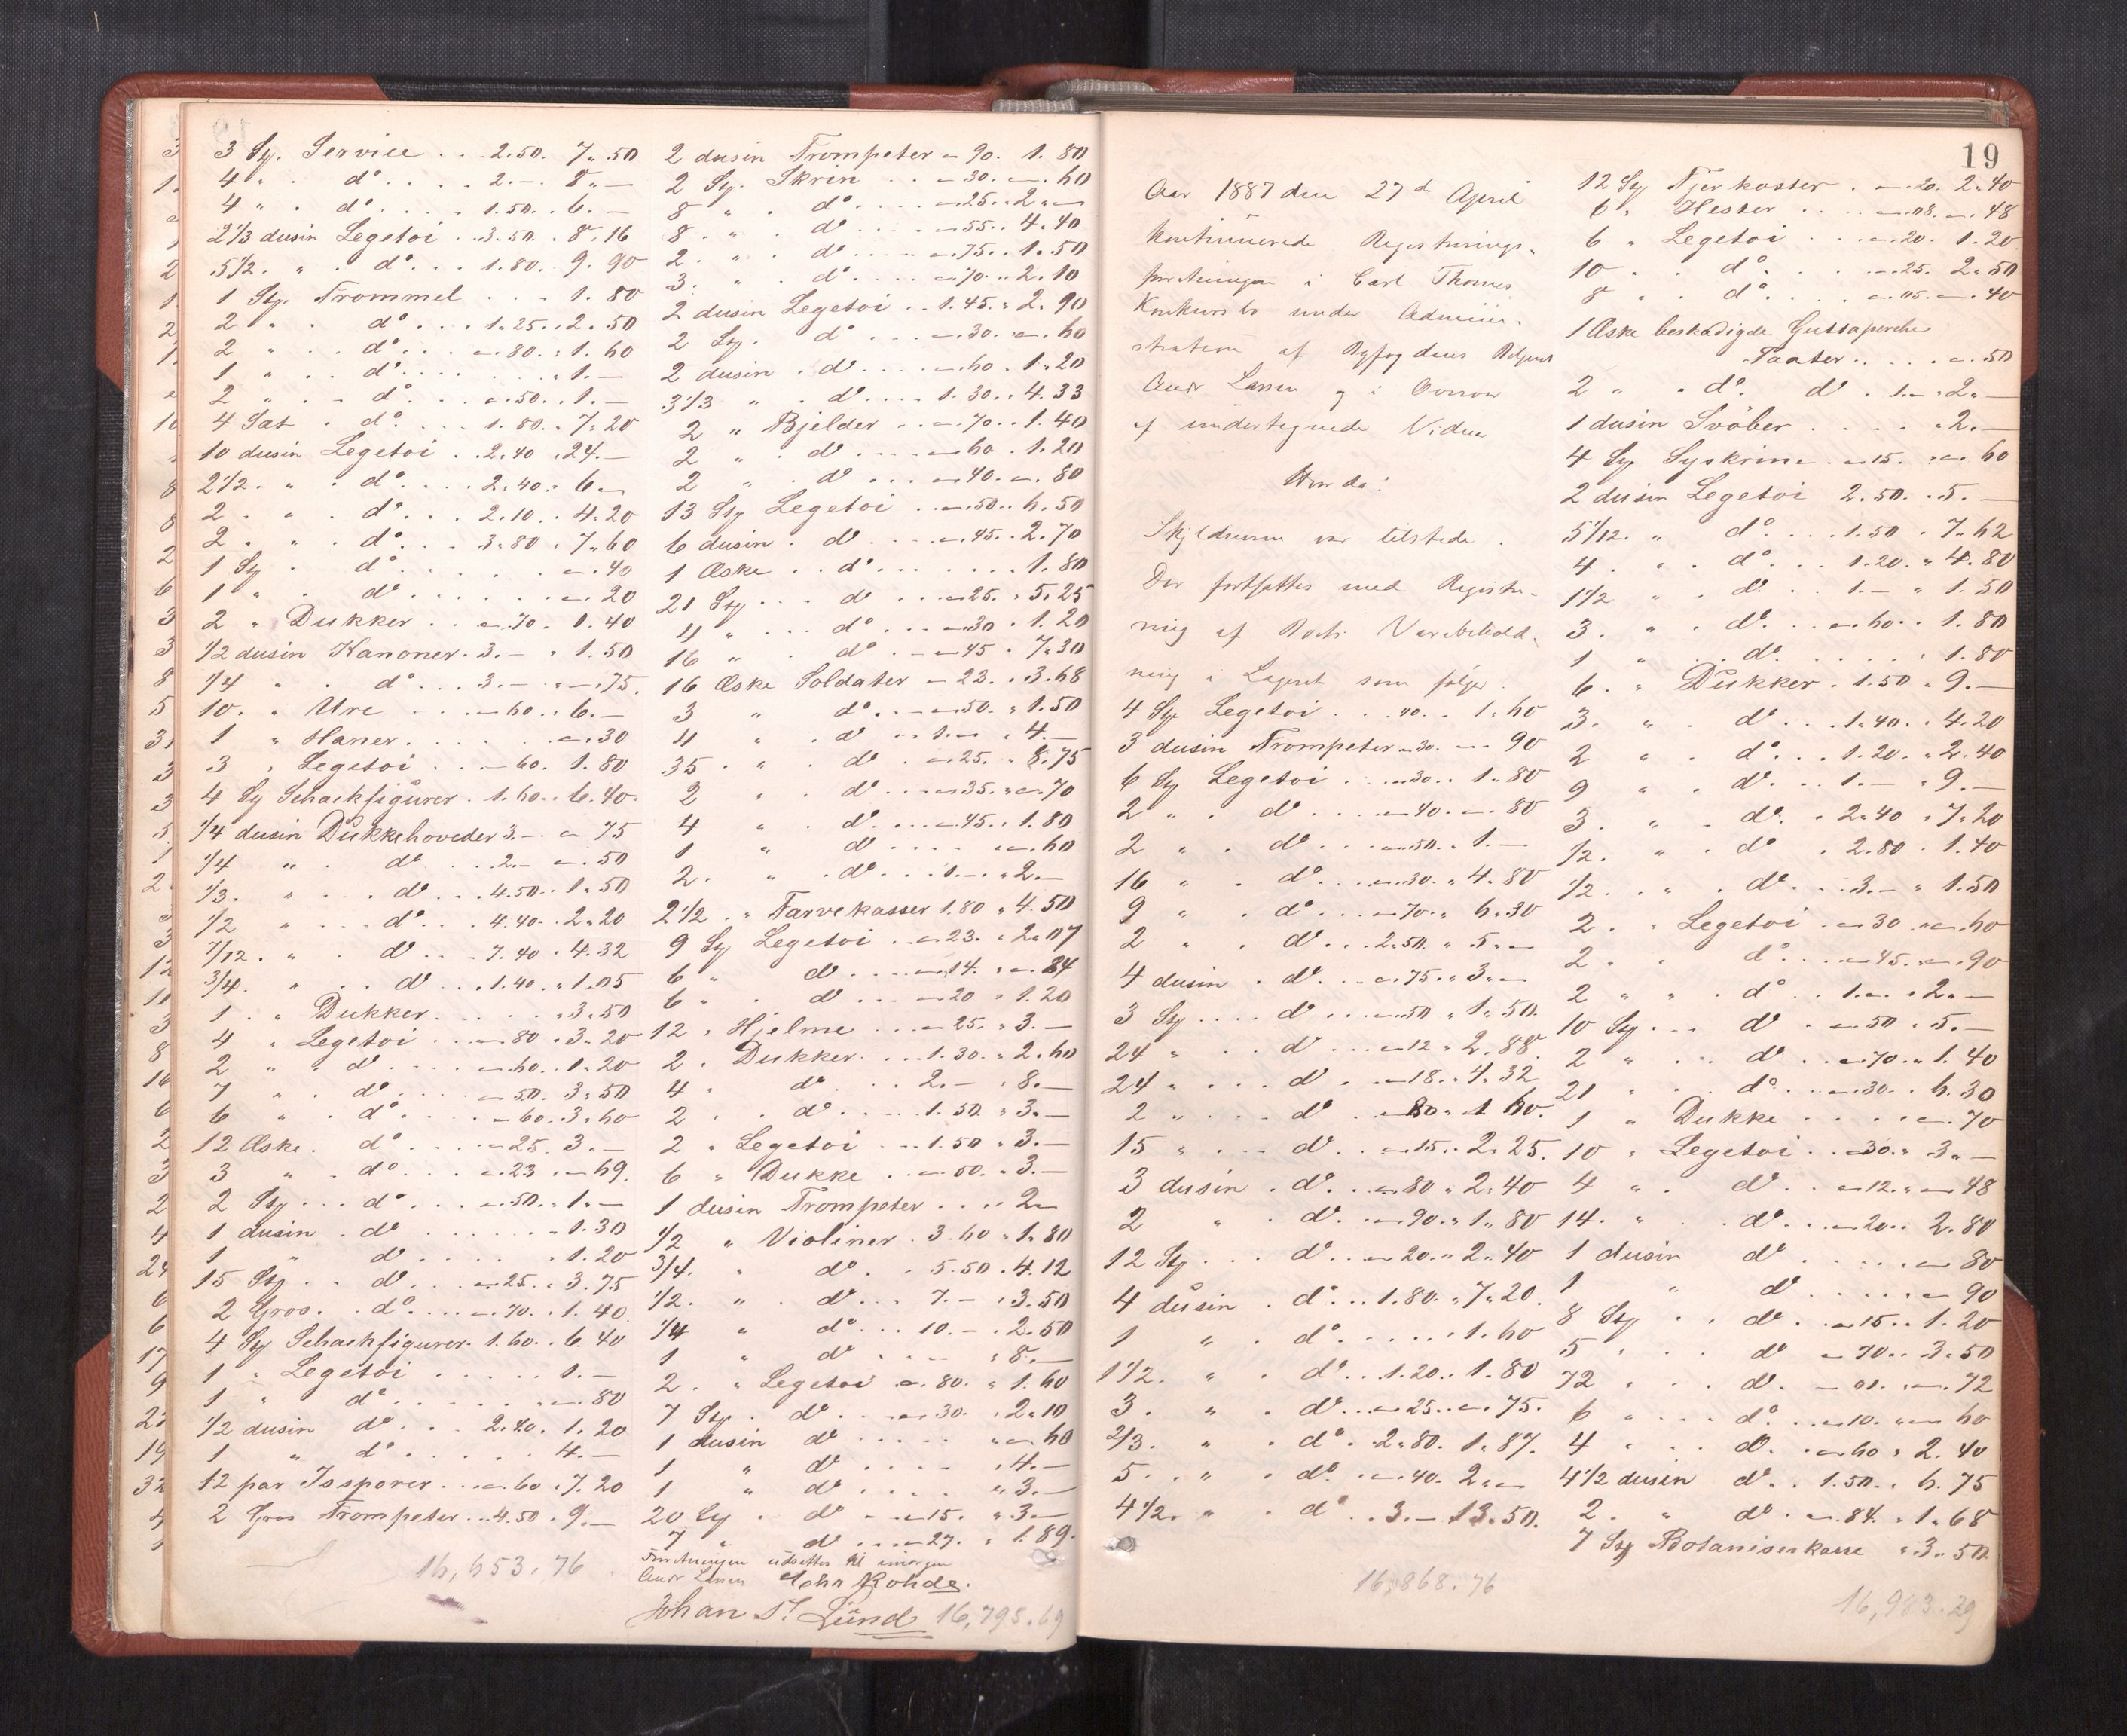 3 Sty. Service . . . 2.50. 7.50
4 " . d° . . . . . 2.-. 8.—
4 " . d° . . . . 1.50. . 6.—
2 1/3 dusin Legetoi . . 3.50. . 8.16
5 1/2. " . d° . . . 1.80. . 9.90
1 Sty. Trommel . . . 1.80
2 " . d° . . . 1.25. . 2.50
2 " . . d° . . . —.80. . 1.60
1 " . . d° . . . . . . 1.—
2 " . . d° . . . —.50. . 1.—
4 Sat . d° . . . 1.80. . 7.20
10 dusin Legetoi . . 2.40 . 24.—
2 1/2. " . d° . . . 2.40. . 6.—
2 . " . d° . . . 2.10. . 4.20
2 . " . d° . . . 3.80 . 7.60
1 Sty . d° . . . . . —.40
1 " . d° . . . . . . —.20
2 " Dukker . . —.70. 1.40
1/2 dusin Kanoner. 3.— . 1.50
1/4 " . d° . . . 3.— . —.75.
10. . Ure . . . —.60. . 6.—
1 " Haner. . . . . . —.30
3 . Legetoi . . . —.60. 1.80
4 Sty Schackfigurer . 1.60. . 6.40.
1/4 dusin Dukkehoveder 3.— . — 75
1/4 " . d° . . . 2.— —.50
1/3. " . . d° . . . 4.50. . 1.50
1/2 " . . d° . . . 4.40. . 2.20
7/12. " . d° . . . 7.40 . 4.32
3/4. " . . d° . . . 1.40. . 1.05
1 . " Dukker. . . . . . 3.50
4 . Legetoi . . . —.80 . 3.20
2 " . d° . . . . —.60. . 1.20
7 " . d° . . . . —.50. 3.50
6 " . d° . . . . —.60. 3.60
12 Æske. d° . . . . —.25. 3.—
3 " . d° . . . —.23 . —.69.
2 Sty . . . d° . . . —.50. . 1.—
1 dusin . d° . . . . . . 1.30
1 " d° . . . . . 1.20
15 Sty. . . d° . . . —.25. . 3.75
2 Gros. . d° . . . . —.70. . 1.40
4 Sty Schackfigurer. 1.60. . 6.40
1 " Legetoi . . . . . 1.—
1 " d° . . . . . . —.80
1/2 dusin d° . . . 2.40. 1.20
1 " d° . . . . . . 4.—
12 par Issporer . . . —.60 . 7.20
2 Gros Trompeter . . 4.50 . 9.—
16,653.76
2 dusin Trompeter — 90. 1.80
2 Sty. Skrin . . . —.30. —.60
8 " . d° . . . . —.25. . 2.—
8 . " . d° . . . . —.55. . 4.40
2. " . d° . . . . —.75. . 1.50
3. " . d° . . . . —.70. . 2.10
2 dusin Legetoi . . 1.45. . 2.90
2 Sty. d° . . . —.30. —.60
2 dusin . d° . . . . —.60 . 1.20
3 1/3 " . d° . . . 1.30. . 4.33
2 " Bjelder . . —.70. . 1.40
2 " . d° . . . . —.60 . 1.20
2 . d° . . . —.40. —.80
13 Sty Legetoi . . —.50. . 6.50
6 dusin . d° . . . . —.45. . 2.70
1 Æske . . d° . . . . . . . 1.80
21 Sty . . . d° . . . —.25. . 5.25
4 " . . . d° . . . —.30 . 1.20
16 " . . d° . — —.45 . 7.30
16 Æske Soldater — 23. . 3.68
3 " . d° . . —.50. . 1.50
4 " . d° . . 1.— . 4.—
35 . " . d° . —.25. . 8.75
2 " . d° . . . —.35. —.70
4 " . d° . . . —.45. . 1.80
1 " . d° . . . . . —.60
2. " . d° . . . 1.— . 2.—
2 1/2 . " Farvekasser 1.80 . 4.50
9 Sty Legetoi . . —.23. . 2.07
6 " d° . . . . —.14. . —.84
6 " . d° . . . —.20 . 1.20
12 . Hjelme . . . —.25. . 3.—
2 . Dukker. . . . 1.30. . 2.60
4 . d° . . . 2.— . 8.—
2 . . d° . . . . 1.50. . 3.—
2 . Legetoi . . . 1.50 . 3.—
6 " Dukke . . —.50. . 3.—
1 dusin Trompeter . . . . 2.—
1/2 " Violiner . 3.60 . 1.80
3/4. " . d° . . 5.50 . 4.12
1/2. " . d° . . . 7.— . 3.50
1/4 " d° . . . 10.— . 2.50
1 " d° . . . . 8.—
2. " Legetoi —.80. . 1.60
7 Sty. . d° . . . —.30. . 2.10
1 dusin d° . . . . . —.60
1 " d° . . . . . 4.—
1 " d° . . . . " 3.—
20 Sty . d° . —.15. . 3.—
7 " d° . . . —.27. . 1.89.
Forretningen udsættes til imorgen
Andr Larsen John Rohde.
Johan St Lund 16,795.69
19
Aar 1887 den 27d April
kontinuerede Registrerings-
forretningen i Carl Thomes
Konkursbo under Admini-
stration af Byfogdens
Andr Larsen og i Overvær
af undertegnede Vidner
Hvorda:
Skyldneren var tilstede.
Der fortsattes med Registre-
ring af Boets Varebehold-
ning i Lageret som følger.
4 Sty Legetoi . . . 40. . 1.60
3 dusin Trompeter —.30. — 90
6 Sty Legetoi . . —.30. . 1.80
2 " . d° . . . —.40. —.80
2 " . d° . . . —.50. . 1.—
16 " . d° . . . —.30. . 4.80
9 " . d° . . . —.70. . 6.30
2 " . d° . . . 2.50. . 5.—
4 dusin . d° . . . —.75. . 3.—
3 Sty . . . . d° . . . —.50 . 1.50.
24 " . . d° . . . —.12 . 2.88.
24 " . . . d° . . —.18. . 4.32
2 " . . . d° . —.80 . 1.60.
15 " . . . d° . . —.15. . 2.25.
3 dusin . d° . . . —.80 . 2.40
2 " . d° . . . —.90. . 1.80
12 Sty . . . d° . . . —.20. . 2.40
4 dusin . d° . . . 1.80. . 7.20.
1 " . d° . . . . . . 1.60
1 1/2. " . d° . . . 1.20. . 1.80
3. " . d° . . . —.25. . —.75.
2/3. " . d° . 2.80. 1.87.
5. . " . d° . . —.40. 2.—
4 1/2. " . d° . . 3.— 13.50.
16,868.76
12 Sty Tjærkoster . —.20. 2.40
6 . Hester . . . —.08. —.48
6 " Legetoi . . . —.20. 1.20.
10 . . d° . . . . —.25. 2.50
8 " . d° . . . . —.05. —.40
1 Æske beskadigede Guttaperche
Paater . . . . —.50
2 " . d°. d° . 1.— . 2.—
1 dusin Svöber . . . . . 2.—
4 Sty Syskrine . —.15. . —.60
2 dusin Legetoi 2.50. . 5.—
5 1/12. " d° . . . . 1.50 . 7.62
4. " . d° . . . 1.20. . 4.80
1 1/2 " . d° . . . 1.— . 1.50
3. " . d° . . . —.60. . 1.80
1 " . d° . . . . . . 1.80
6. " Dukker . 1.50 . 9.—
3. " . d° . . . 1.40. . 4.20
2 " . d° . . . 1.20. . 2.40
9 " . d° . . . 1.— . 9.—
3. " . d° . . 2.40 . 7.20
1/2. " . d° . 2.80 . 1.40
1/2. " . d° . . 3.— . 1.50
2. . Legetoi . —.30 . —.60
2. . d° . . . —.45. . —.90
2 " " . d° . . 1.— . 2.—
10 Sty . . . d° . —.50 . 5.—
2 " . . d° . . —.70. . 1.40
21 " . . d° . . —.30. . 6.30
1 " Dukke . . . . . —.70
10 . Legetoi . . —.30. . 3.—
4 " . d° . . —.12. . —.48
14. " . d° . . . —.20. . 2.80
1 dusin d° . . . . . — 80
1 " d° . . . . . — 90
8 Sty . . d° . —.15. . 1.20
5 " . . d° — 70. . 3.50
72 " . . d° . — 01. . —.72
6 " . . . d° . . —.10. . — 60
4 " . . d° . . —.60 . 2.40
4 1/2 dusin d° . . 1.50. . 6.75
2. " d° . —.84. . 1.68
7 Sty Botaniserkasse . 3.50.
16,983.29